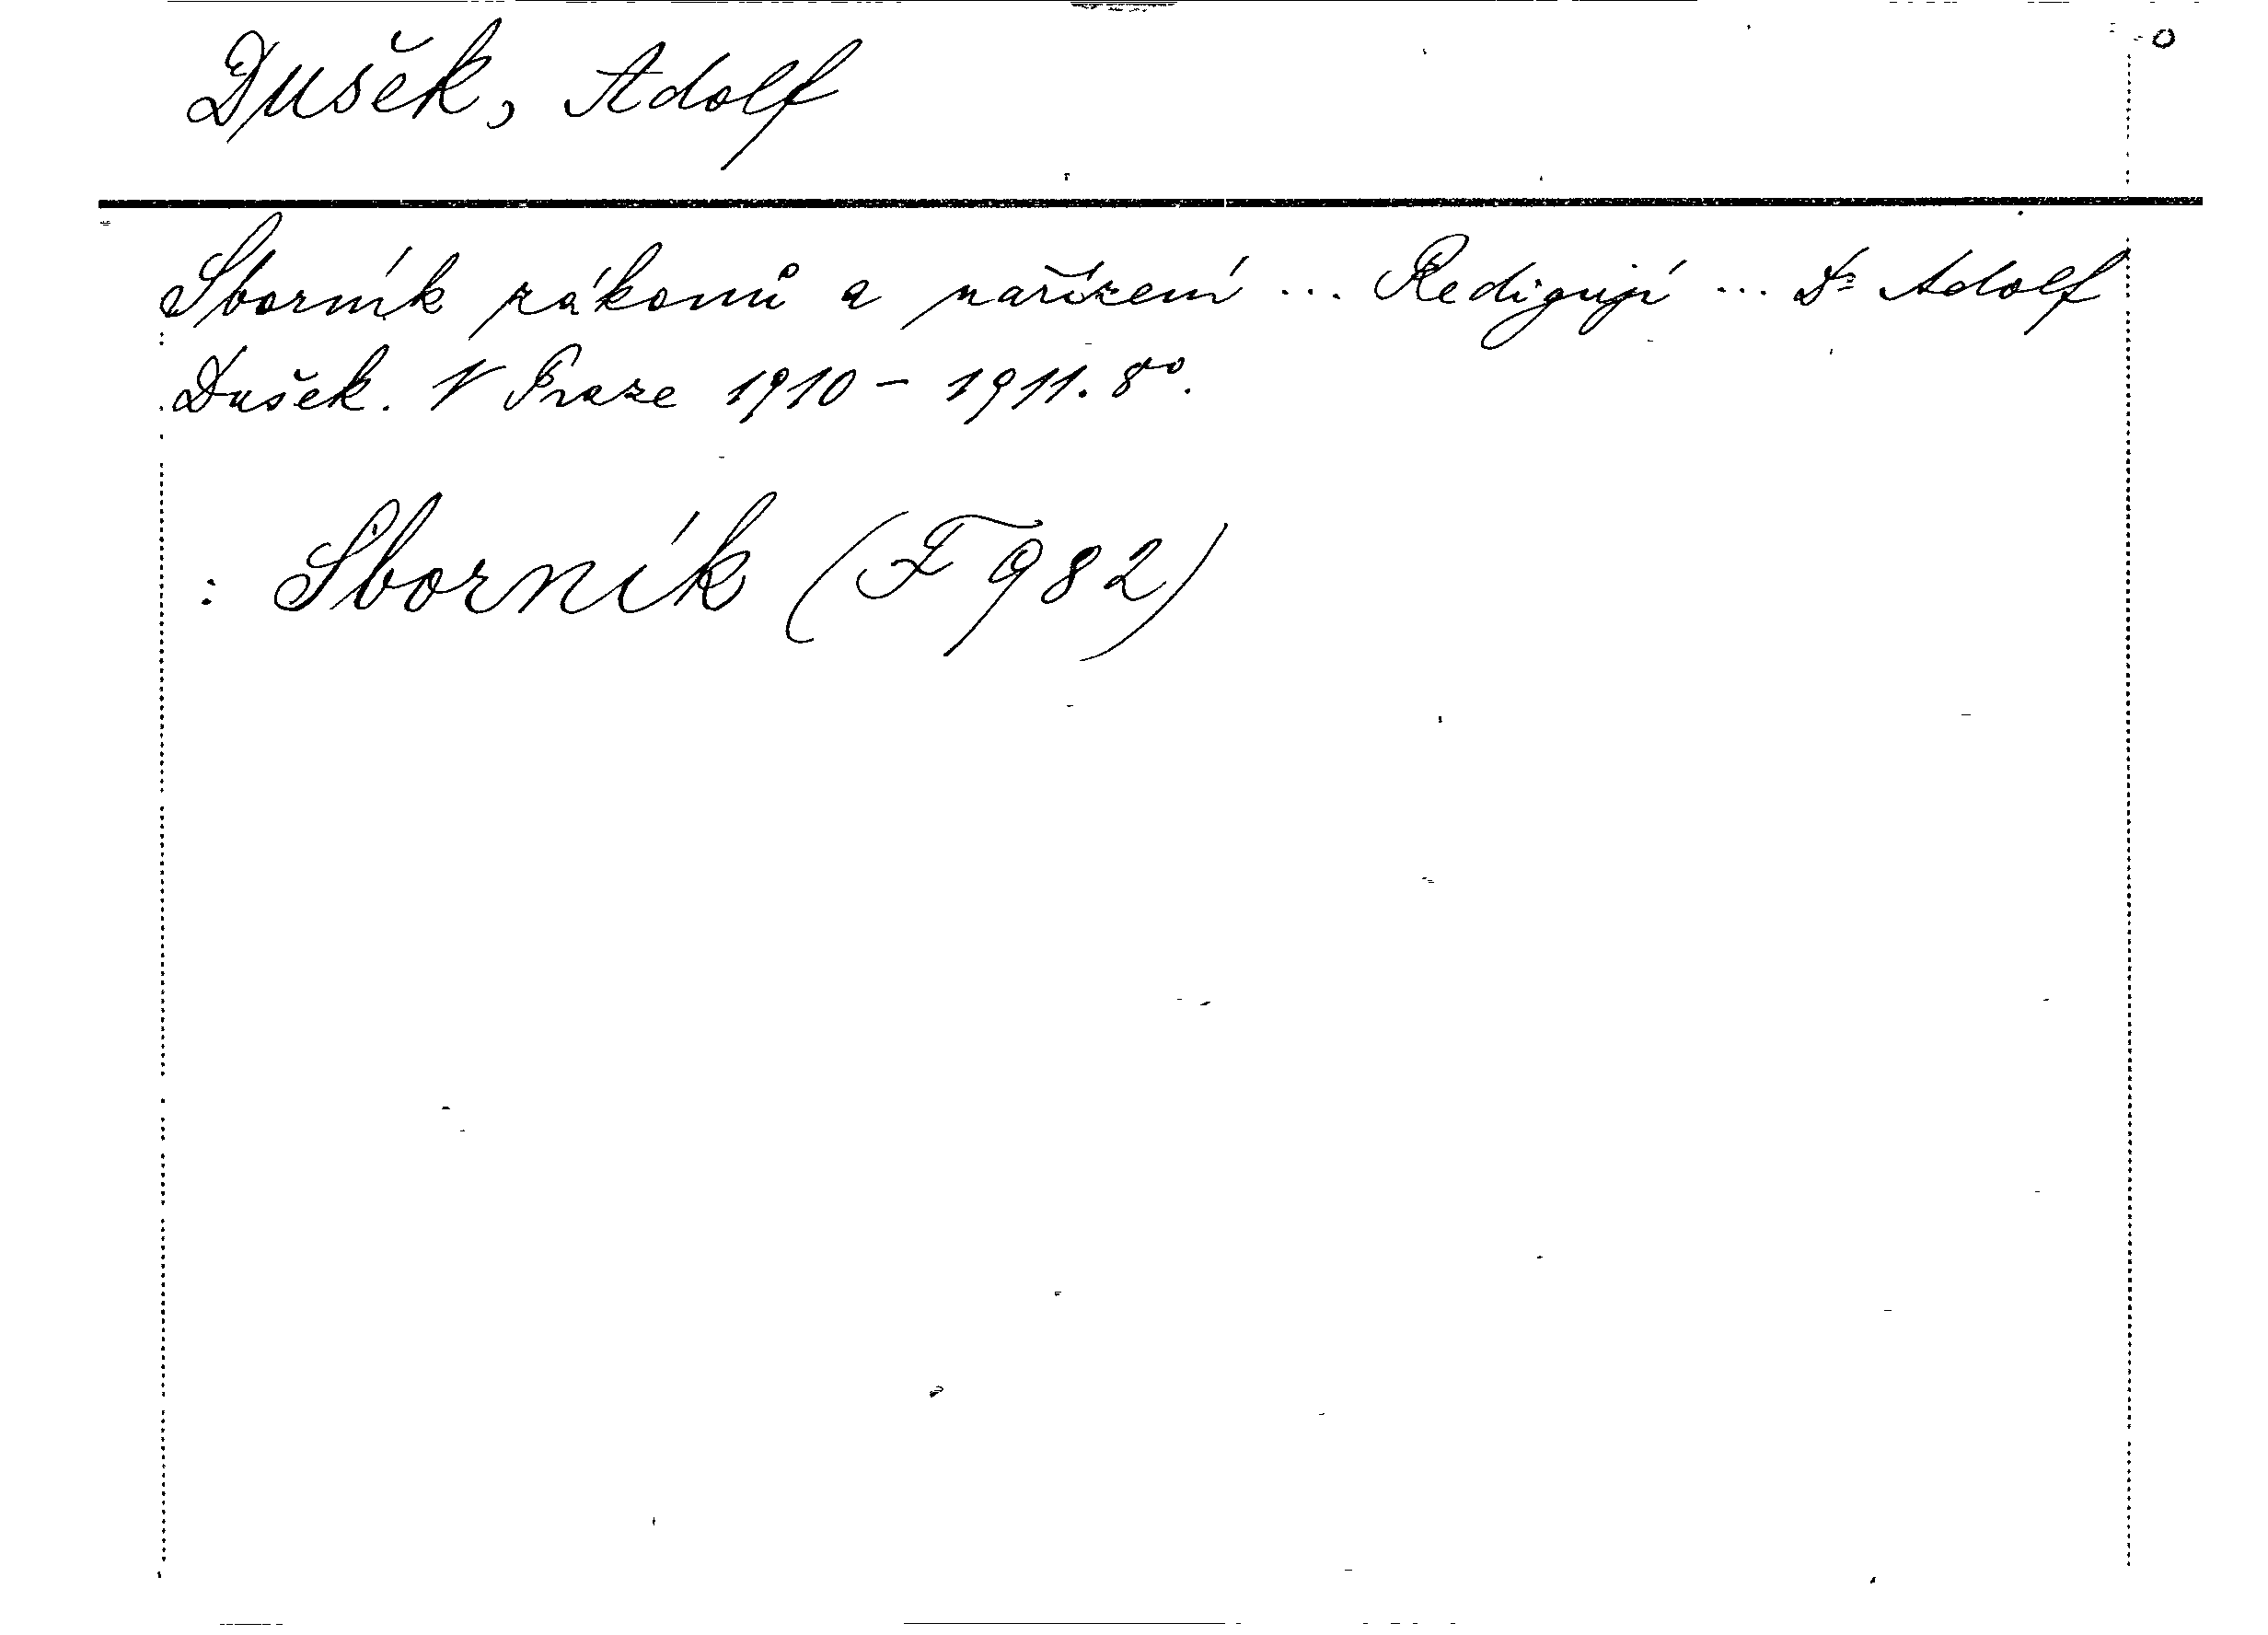 Dušek, Adolf
Sborník zákonů a nařízení ... Redigují ... Dr Adolf
Dušek. V Praze 1910 - 1911. 8°.
: Sborník (F 982)